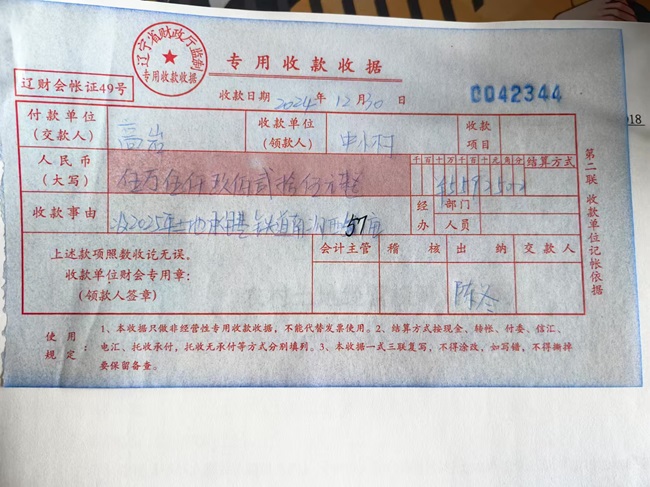 辽宁省财政厅监制
专用收款收据
专用收款收据
辽财会帐证49号
收款日期 2024年 12月30日
0042344
018
付款单位
(交款人)
高岩
收款单位
(领款人)
中小村
收款
项目
人民币
(大写)
伍万伍仟玖佰贰拾伍元整
千百十万千百十元角分
结算方式
收款事由
2025年土地承包 铁道南 57亩
经办
部门
人员
上述款项照数收讫无误。
收款单位财会专用章:
(领款人签章)
会计主管
稽核
出纳
交款人
陈冬
第二联 收款单位记帐依据
使用规定:
1、本收据只做非经营性专用收款收据,不能代替发票使用。2、结算方式按现金、转帐、付委、信汇、
电汇、托收承付,托收无承付等方式分别填利。3、本收据一式三联复写,不得涂改,如写错,不得撕掉
要保留备查。